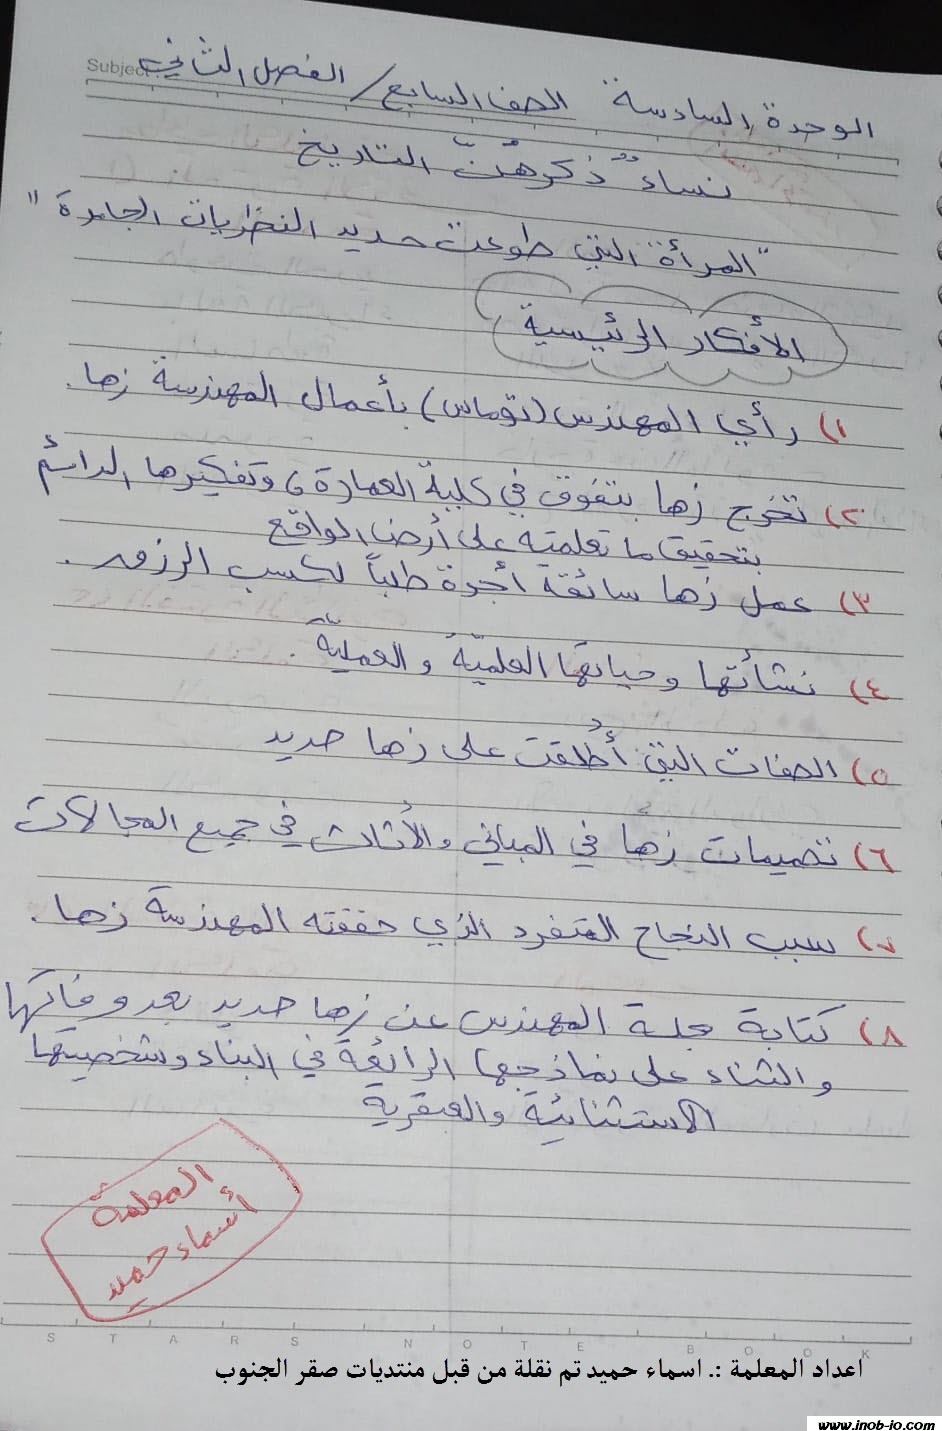 Subject
الوحدة السادسة الصف السابع / الفصل الثاني
نساءٌ ذكرهُنّ التاريخ
"المرأة التي طوعت حديد النظريات الجامدة"
الأفكار الرئيسية
١) رأي المهندس (توماس) بأعمال المهندسة زها.
٢) تخرج زها بتفوق في كلية العمارة، وتفكيرها الدائم
بتحقيق ما تعلمته على أرض الواقع
٣) عمل زها سائقة أجرة طلباً لكسب الرزق.
٤) نشأتها وحياتها العلميّة والعمليّة.
٥) الصفات التي أُطلقت على زها حديد
٦) تصميمات زها في المباني والأثاث في جميع المجالات
٧) سبب النجاح المتفرد الذي حققته المهندسة زها.
٨) كتابة مجلة المهندس عن زها حديد بعد وفاتها
والثناء على نماذجها الرائعة في البناء وشخصيتها
الاستثنائية والعبقرية
المعلمة
أسماء حميد
STARS NOTE BOOK
اعداد المعلمة :. اسماء حميد تم نقلة من قبل منتديات صقر الجنوب
www.jnob-jo.com